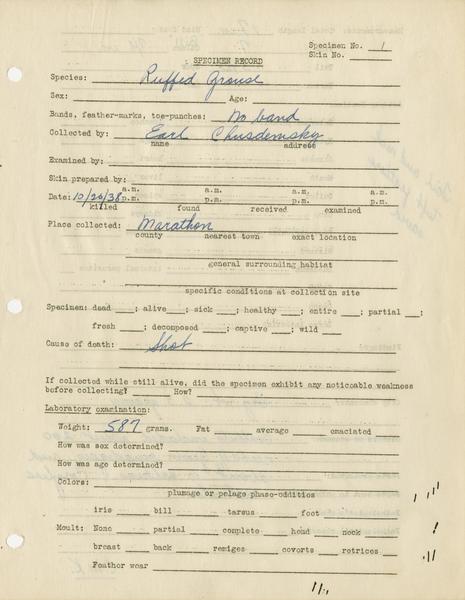 Specimen No. 1
Skin No.
SPECIMEN RECORD
Species: Ruffed Grouse
Sex: Age:
Bands, feather-marks, toe-punches: No band
Collected by: Earl
name address
Examined by:
Skin prepared by:
a.m. a.m. a.m. a.m.
Date: 10/26/38 p.m. p.m. p.m. p.m.
killed found received examined
Place collected: Marathon
county nearest town exact location
general surrounding habitat
specific conditions at collection site
Specimen: dead ; alive ; sick ; healthy ; entire ; partial ;
fresh ; decomposed ; captive ; wild
Cause of death: Shot
If collected while still alive, did the specimen exhibit any noticeable weakness
before collecting? How?
Laboratory examination:
Weight: 587 grams. Fat average emaciated
How was sex determined?
How was age determined?
Colors:
plumage or pelage phase-oddities
iris bill tarsus foot
Moult: None partial complete head neck
breast back remiges coverts retrices
Feather wear